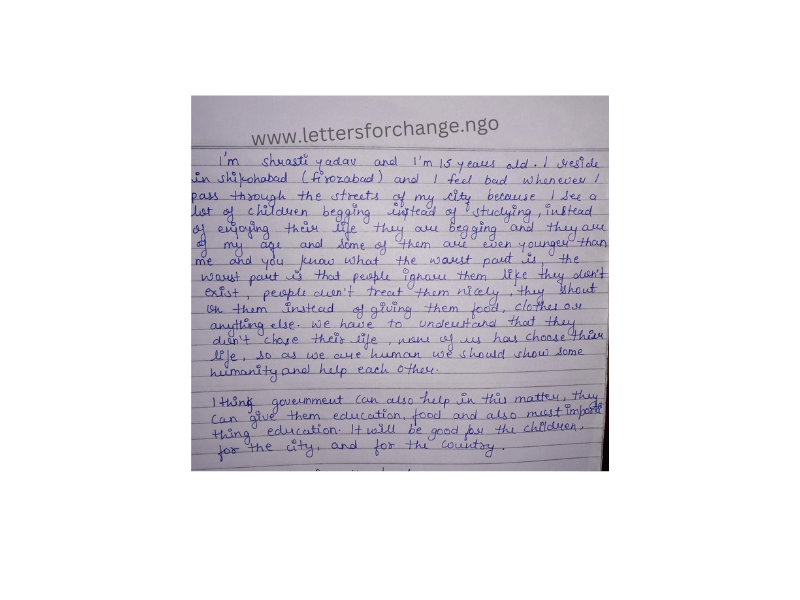 www.lettersforchange.ngo
I'm shrasti yadav and I'm 15 years old. I reside
in shikohabad (firozabad) and I feel bad whenever I
pass through the streets of my city because I see a
lot of children begging instead of studying, instead
of enjoying their life they are begging and they are
of my age and some of them are even younger than
me and you know what the worst part is, the
worst part is that people ignore them like they don't
exist, people don't treat them nicely, they shout
on them instead of giving them food, clothes or
anything else. we have to understand that they
didn't chose their life, none of us has choose their
life, so as we are human we should show some
humanity and help each other.
I think government can also help in this matter, they
can give them education, food and also most important
thing education. It will be good for the children,
for the city, and for the country.